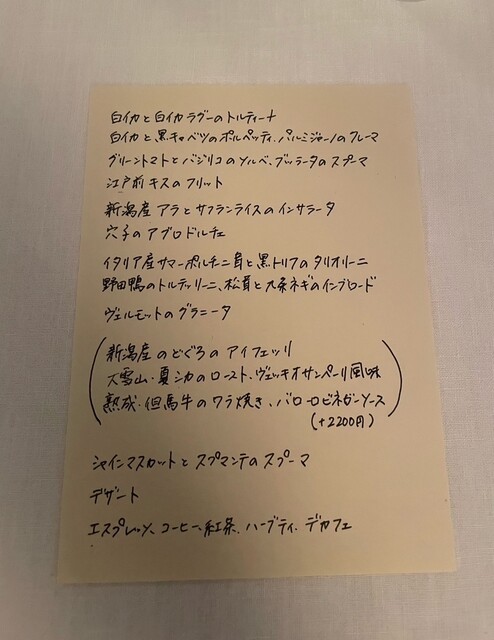 白イカと白イカラグーのトルティーナ
白イカと黒キャベツのポルペッティ、パルミジャーノのクレーマ
グリーントマトとバジリコのソルベ、ブッラータのスプーマ
江戸前キスのフリット
新潟産アラとサフランライスのインサラータ
穴子のアグロドルチェ
イタリア産サマーポルチーニ茸と黒トリフのタリオリーニ
野田鴨のトルテッリーニ、松茸と九条ネギのインブロード
ヴェルモットのグラニータ
新潟産のどぐろのアイフェッリ
大雪山・夏シカのロースト、ヴェッキオサンペーリ風味
熟成・但馬牛のワラ焼き、バローロビネガーソース
(+2200円)
シャインマスカットとスプマンテのスプーマ
デザート
エスプレッソ、コーヒー、紅茶、ハーブティ、デカフェ